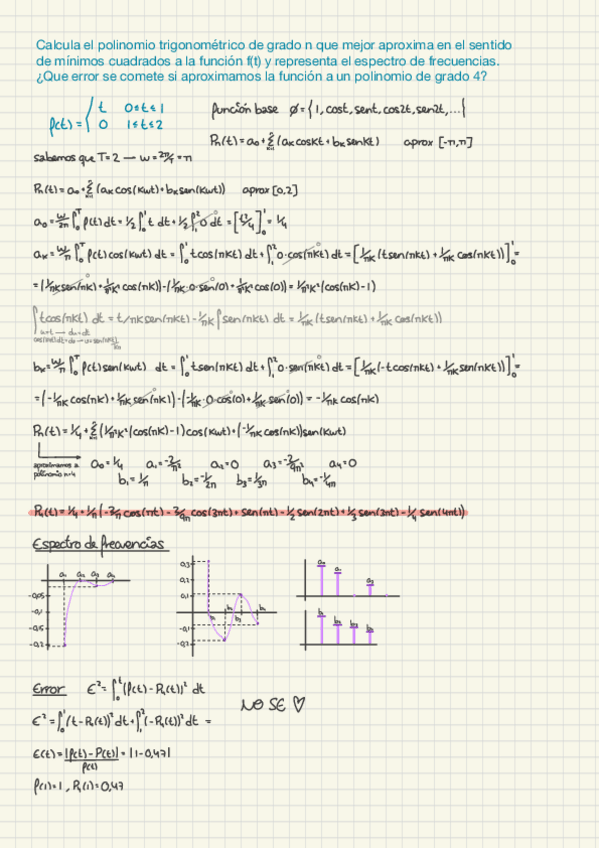 Calcula el polinomio trigonométrico de grado n que mejor aproxima en el sentido
de mínimos cuadrados a la función f(t) y representa el espectro de frecuencias.
¿Que error se comete si aproximamos la función a un polinomio de grado 4?
f(t) = { t 0≤t≤1
0 1≤t≤2
función base ø = {1, cost, sent, cos2t, sen2t, ...}
Pn(t) = a0 + Σ (ak cosKt + bk senKt) aprox [-π,π]
sabemos que T=2 → w = 2π/T = π
Pn(t) = a0 + Σ (ak cos(Kwt) + bk sen(Kwt)) aprox [0,2]
a0 = w/2π ∫₀ᵀ f(t) dt = 1/2 ∫₀¹ t dt + 1/2 ∫₁² 0 dt = [t²/4]₀¹ = 1/4
ak = w/π ∫₀ᵀ f(t) cos(Kwt) dt = ∫₀¹ t cos(πKt) dt + ∫₁² 0·cos(πKt) dt = [1/πK (t sen(πKt) + 1/πK cos(πKt))]₀¹ =
= (1/πK sen(πK) + 1/π²K² cos(πK)) - (1/πK·0·sen(0) + 1/π²K² cos(0)) = 1/π²K² (cos(πK) - 1)
∫ t cos(πKt) dt = t/πK sen(πKt) - 1/πK ∫ sen(πKt) dt = 1/πK (t sen(πKt) + 1/πK cos(πKt))
u=t → du=dt
bk = w/π ∫₀ᵀ f(t) sen(Kwt) dt = ∫₀¹ t sen(πKt) dt + ∫₁² 0·sen(πKt) dt = [1/πK (-t cos(πKt) + 1/πK sen(πKt))]₀¹ =
= (-1/πK cos(πK) + 1/πK sen(πK)) - (-1/πK·0·cos(0) + 1/πK sen(0)) = -1/πK cos(πK)
Pn(t) = 1/4 + Σ (1/π²K² (cos(πK) - 1) cos(Kwt) + (-1/πK cos(πK)) sen(Kwt)
aproximamos a a0 = 1/4 a1 = -2/π² a2 = 0 a3 = -2/9π² a4 = 0
polinomio n=4 b1 = 1/π b2 = -1/2π b3 = 1/3π b4 = -1/4π
P4(t) = 1/4 + 1/π (-2/π cos(πt) - 2/9π cos(3πt) + sen(πt) - 1/2 sen(2πt) + 1/3 sen(3πt) - 1/4 sen(4πt))
Espectro de frecuencias
a1 a2 a3 a4
-0,05
-0,1
-0,15
-0,2
0,3
0,2
0,1
-0,1
-0,2
b1 b2 b3 b4
a0 a1 a3
b1 b2 b3 b4
Error ε² = ∫₀ᵗ (f(t) - P4(t))² dt
NO SE ♡
ε² = ∫₀¹ (t - P4(t))² dt + ∫₁² (-P4(t))² dt =
ε(t) = |f(t) - P(t)| / f(t) = |1 - 0,47|
f(1) = 1, P4(1) = 0,47